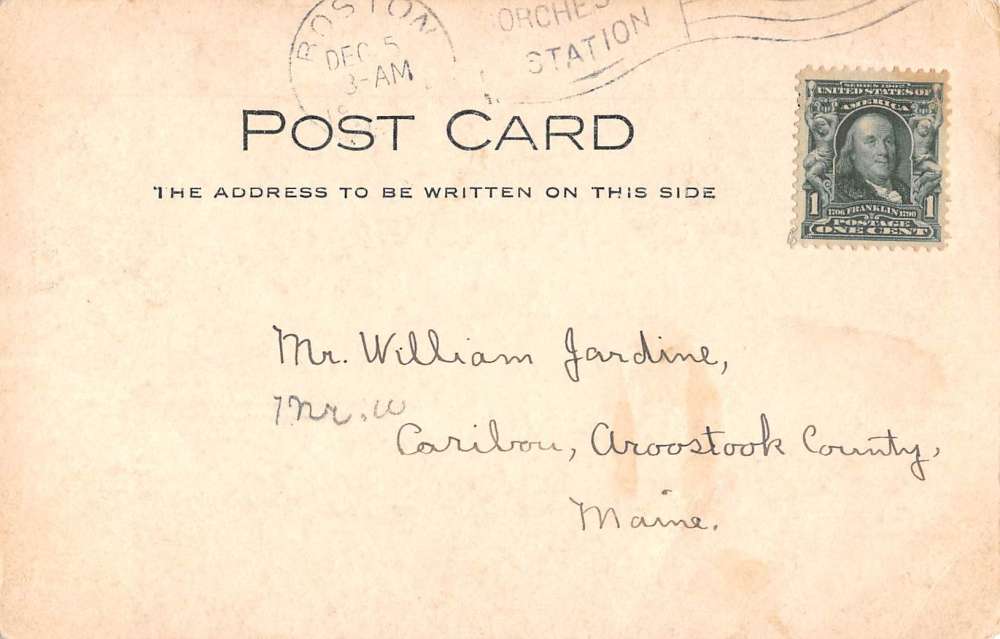 BOSTON
DEC 5
3-AM
ORCHES
STATION
POST CARD
THE ADDRESS TO BE WRITTEN ON THIS SIDE
SERIES 1902
UNITED STATES OF
AMERICA
1 1706 FRANKLIN 1790 1
POSTAGE
ONE CENT
Mr. William Jardine,
Mr. W
Caribou, Aroostook County,
Maine.